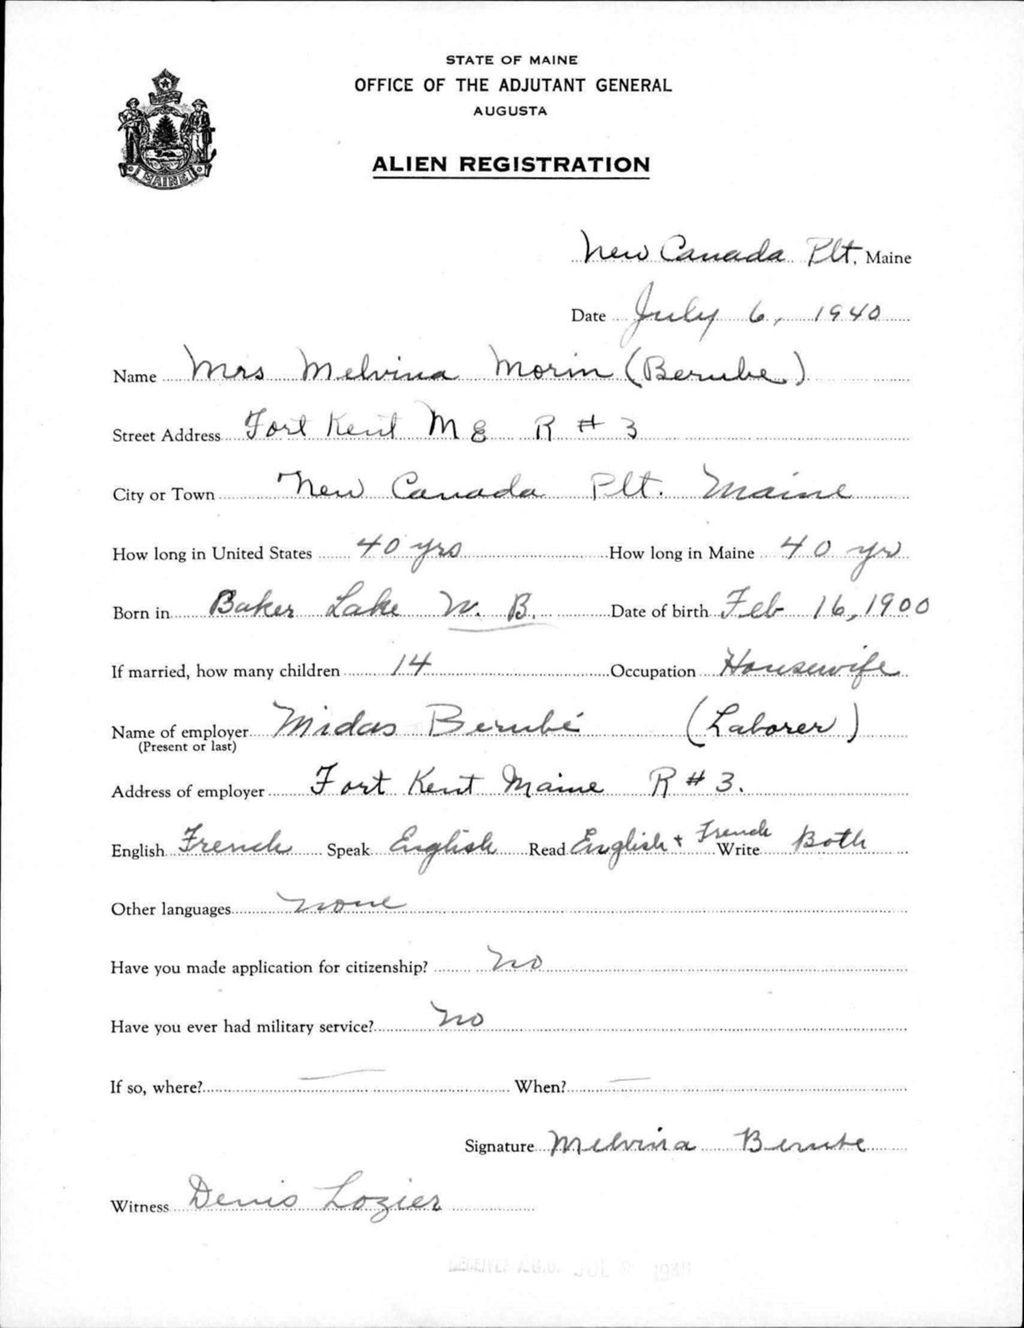 STATE OF MAINE
OFFICE OF THE ADJUTANT GENERAL
AUGUSTA
MAINE
ALIEN REGISTRATION
New Canada Plt, Maine
Date July 6, 1940
Name Mrs Melvina Morin (Berube)
Street Address Fort Kent ME R # 3
City or Town New Canada Plt. Maine
How long in United States 40 yrs How long in Maine 40 yr
Born in Baker Lake N. B. Date of birth Feb 16, 1900
If married, how many children 14 Occupation Housewife
Name of employer Midas Berubé (Laborer)
(Present or last)
Address of employer Fort Kent Maine R # 3.
English French Speak English Read English + French Write Both
Other languages none
Have you made application for citizenship? No
Have you ever had military service? No
If so, where? — When? —
Signature Melvina Berube
Witness Denis Lozier
RECEIVED A.G.O. JUL